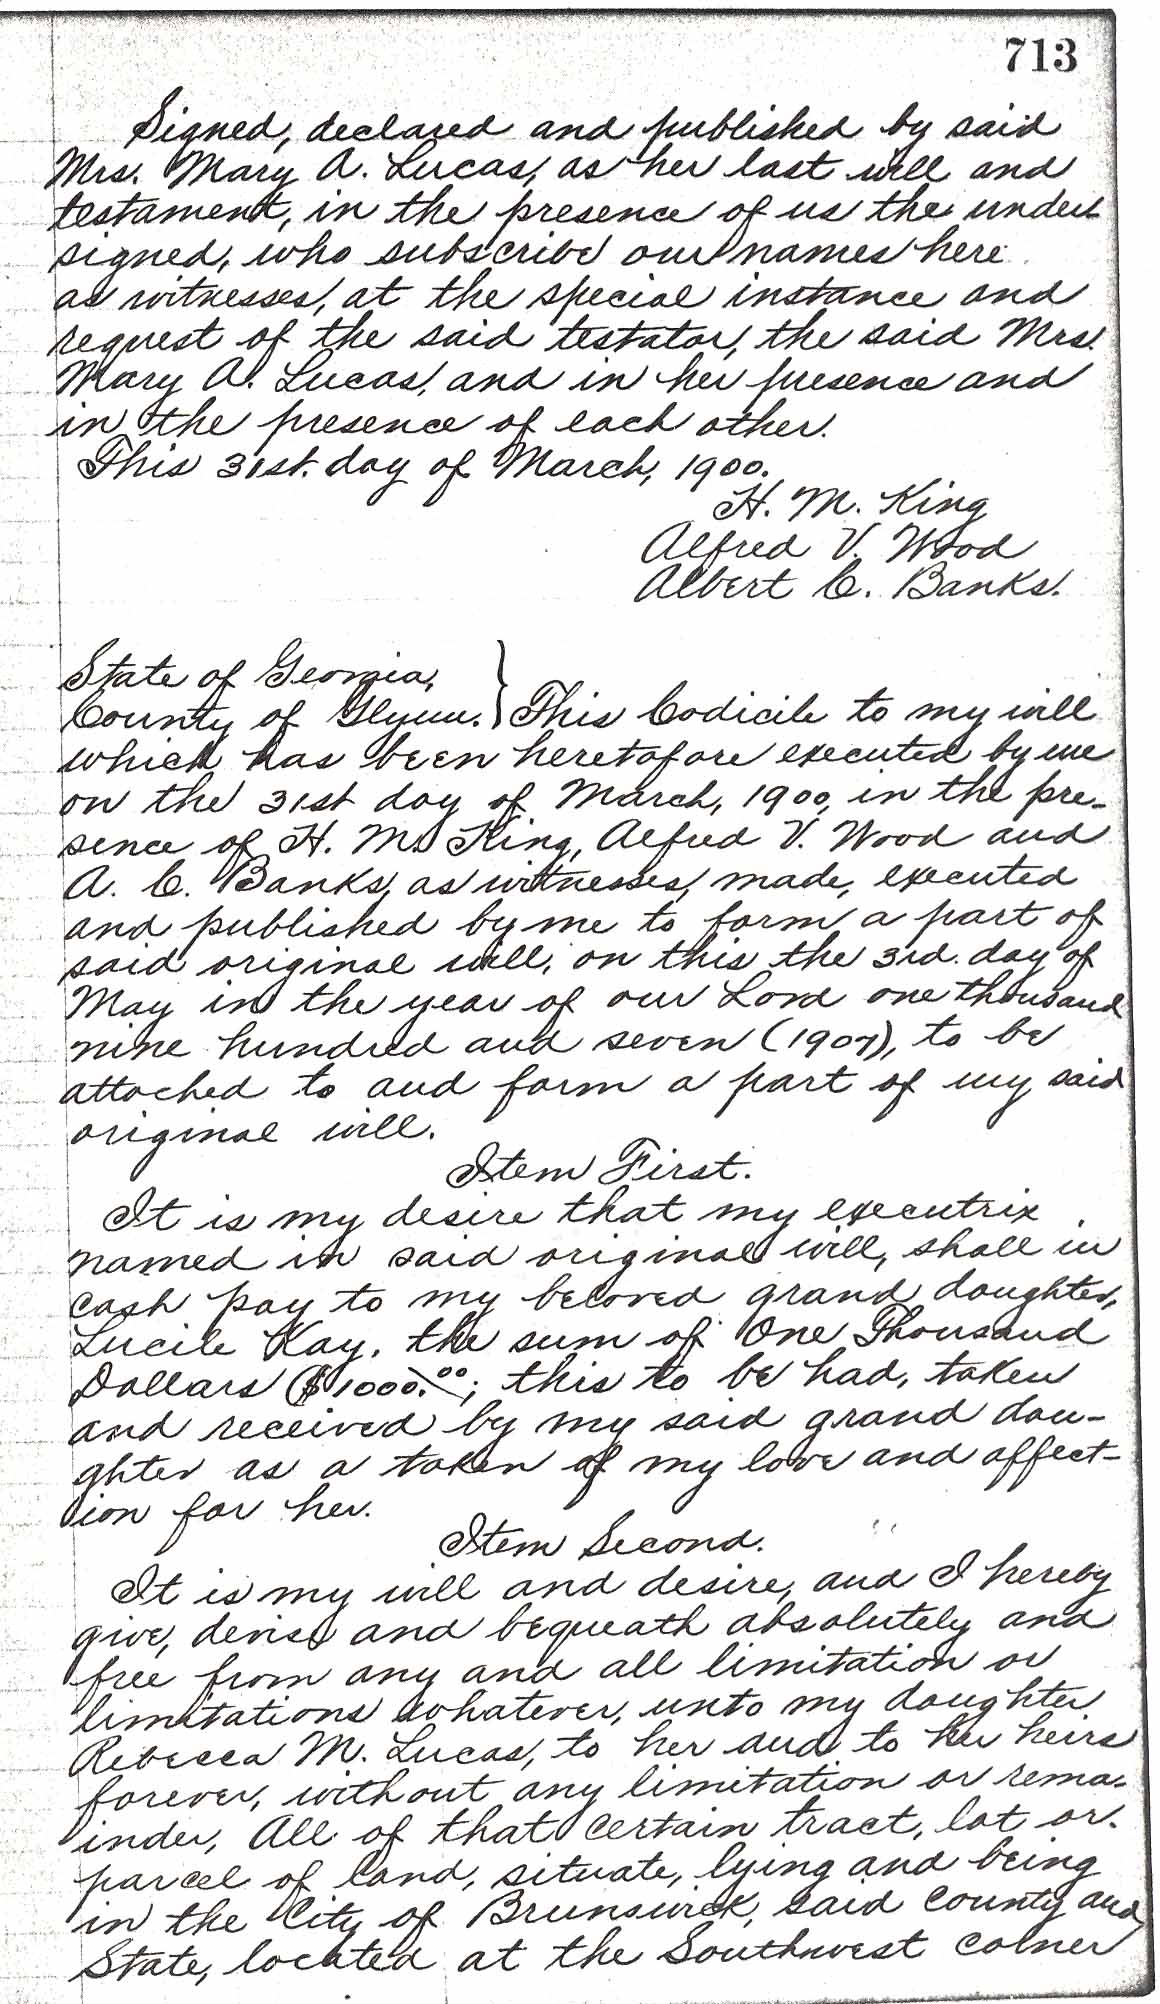 713
Signed, declared and published by said
Mrs. Mary A. Lucas, as her last will and
testament, in the presence of us the under-
signed, who subscribe our names here
as witnesses, at the special instance and
request of the said testator, the said Mrs.
Mary A. Lucas, and in her presence and
in the presence of each other.
This 31st. day of March, 1900.
H. M. King
Alfred V. Wood
Albert C. Banks.
State of Georgia,
County of Glynn. } This Codicile to my will
which has been heretofore executed by me
on the 31st day of March, 1900, in the pre-
sence of H. M. King, Alfred V. Wood and
A. C. Banks, as witnesses, made, executed
and published by me to form a part of
said original will, on this the 3rd. day of
May in the year of our Lord one thousand
nine hundred and seven (1907), to be
attached to and form a part of my said
original will.
Item First.
It is my desire that my executrix
named in said original will, shall in
cash pay to my beloved grand daughter,
Lucile Kay, the sum of One Thousand
Dollars ($1000.00; this to be had, taken
and received by my said grand dau-
ghter as a token of my love and affect-
ion for her.
Item Second.
It is my will and desire, and I hereby
give, devise and bequeath absolutely and
free from any and all limitation or
limitations whatever, unto my daughter
Rebecca M. Lucas, to her and to her heirs
forever, without any limitation or rema-
inder, All of that certain tract, lot or
parcel of land, situate, lying and being
in the City of Brunswick, said County and
State, located at the Southwest corner